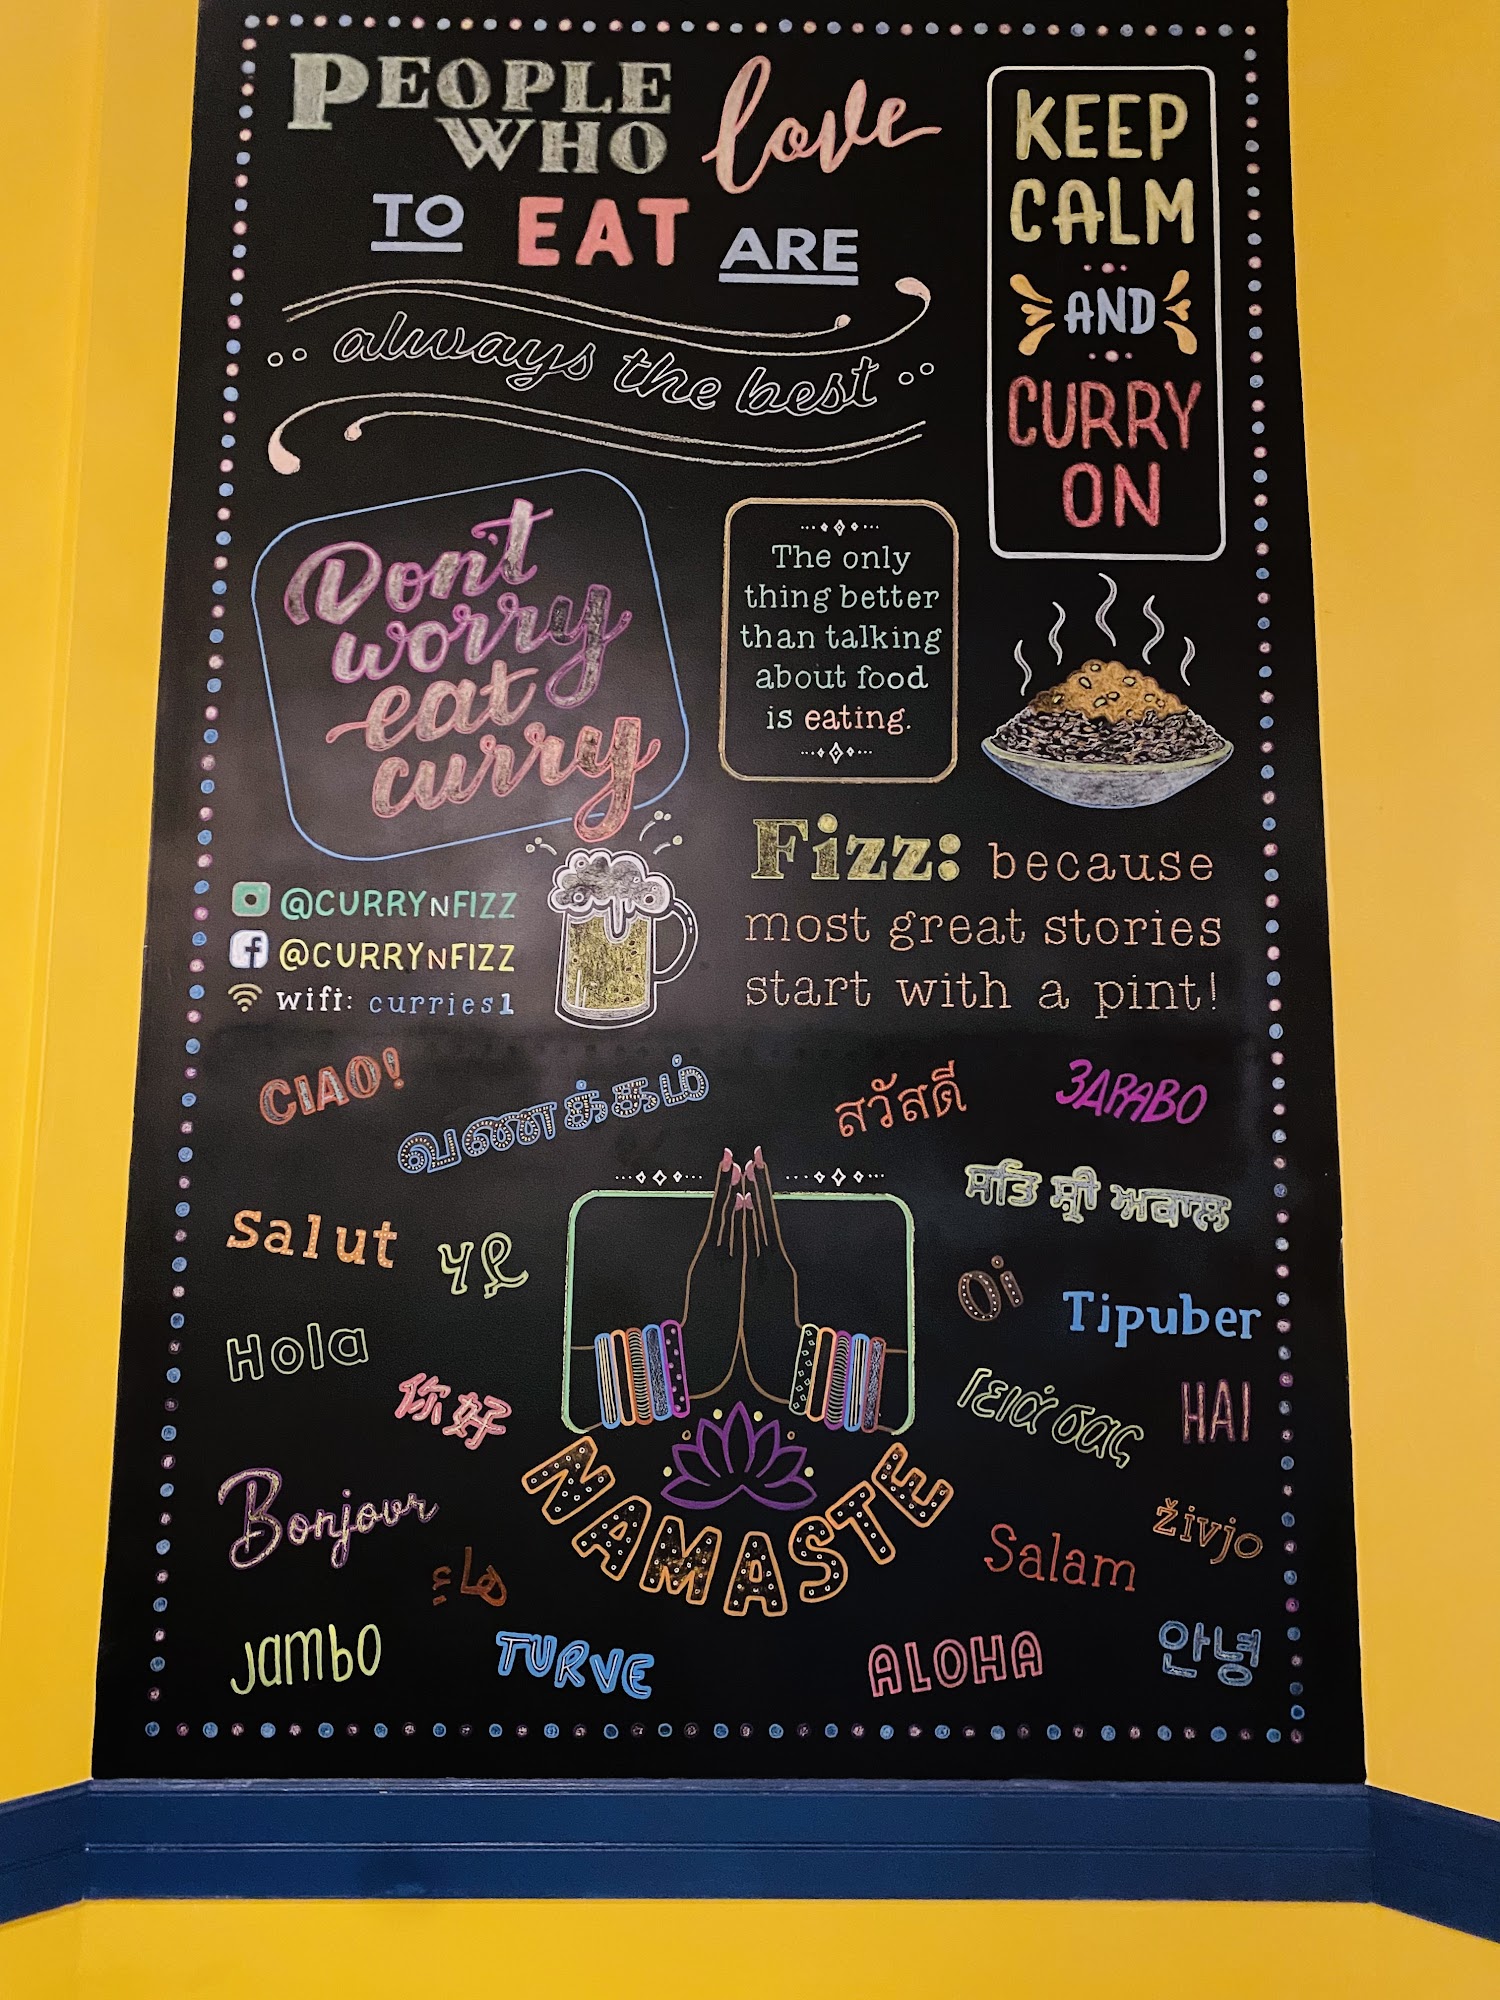 PEOPLE
WHO love
TO EAT ARE
always the best
KEEP
CALM
AND
CURRY
ON
Don't
worry
eat
curry
The only
thing better
than talking
about food
is eating.
@CURRYNFIZZ
@CURRYNFIZZ
wifi: curries1
Fizz: because
most great stories
start with a pint!
CIAO!
வணக்கம்
สวัสดี
ЗДРАВО
ਸਤਿ ਸ਼੍ਰੀ ਅਕਾਲ
Salut
Oi
Tipuber
Hola
你好
Γειά σας
HAI
Bonjour
NAMASTE
Salam
živjo
Jambo
TURVE
ALOHA
안녕